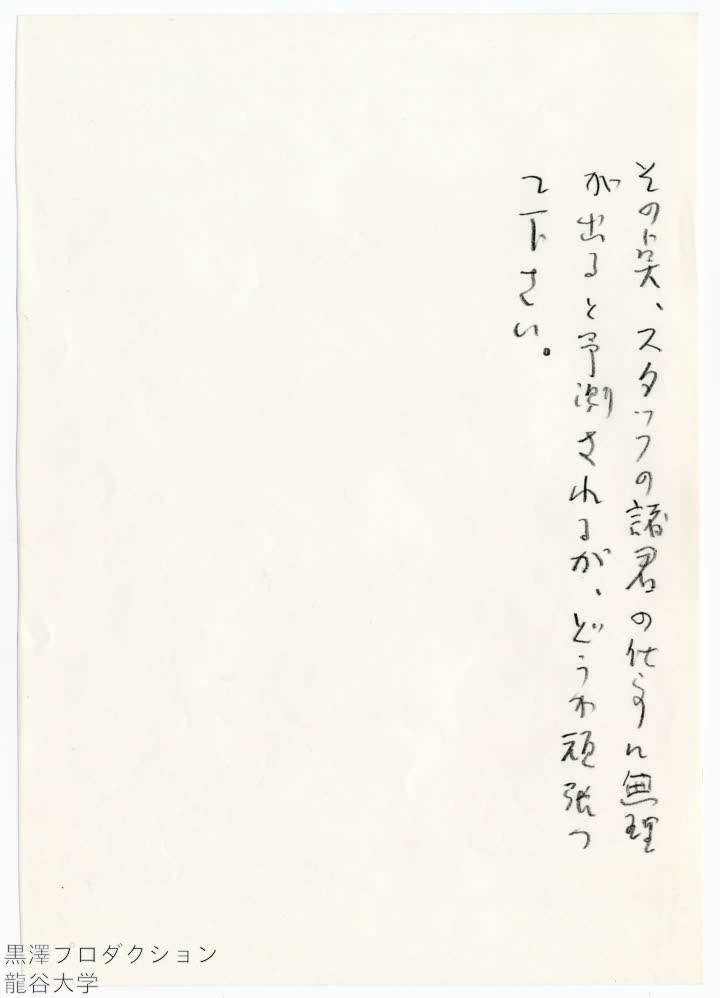 その点、スタッフの諸君の仕事に無理
が出ると予測されるが、どうか頑張つ
て下さい。
黒澤プロダクション
龍谷大学